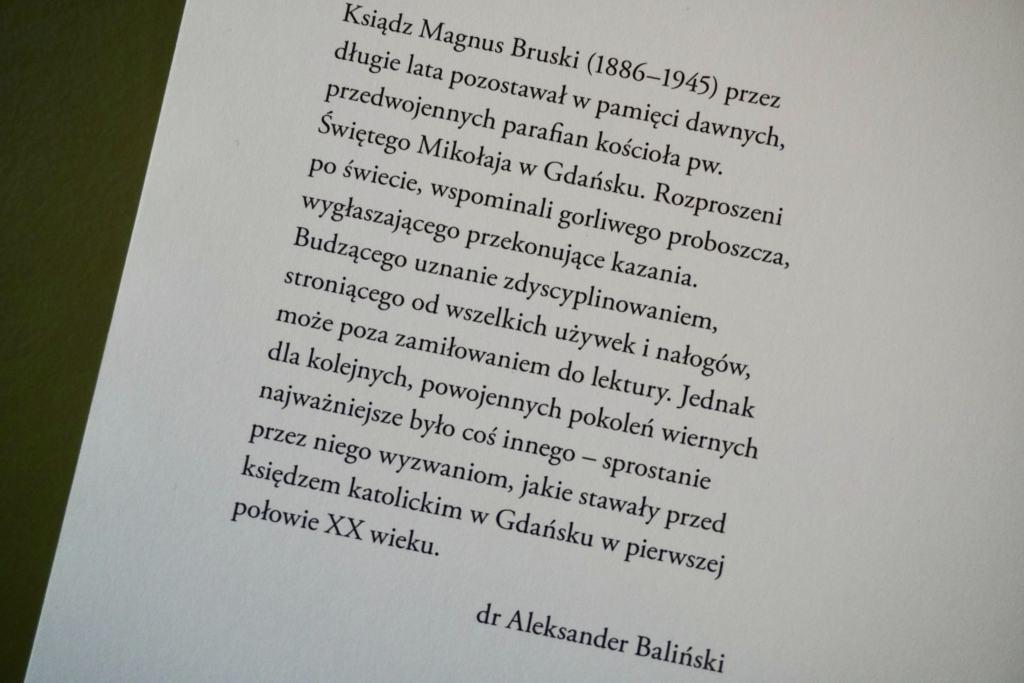 Ksiądz Magnus Bruski (1886–1945) przez
długie lata pozostawał w pamięci dawnych,
przedwojennych parafian kościoła pw.
Świętego Mikołaja w Gdańsku. Rozproszeni
po świecie, wspominali gorliwego proboszcza,
wygłaszającego przekonujące kazania.
Budzącego uznanie zdyscyplinowaniem,
stroniącego od wszelkich używek i nałogów,
może poza zamiłowaniem do lektury. Jednak
dla kolejnych, powojennych pokoleń wiernych
najważniejsze było coś innego – sprostanie
przez niego wyzwaniom, jakie stawały przed
księdzem katolickim w Gdańsku w pierwszej
połowie XX wieku.
dr Aleksander Baliński